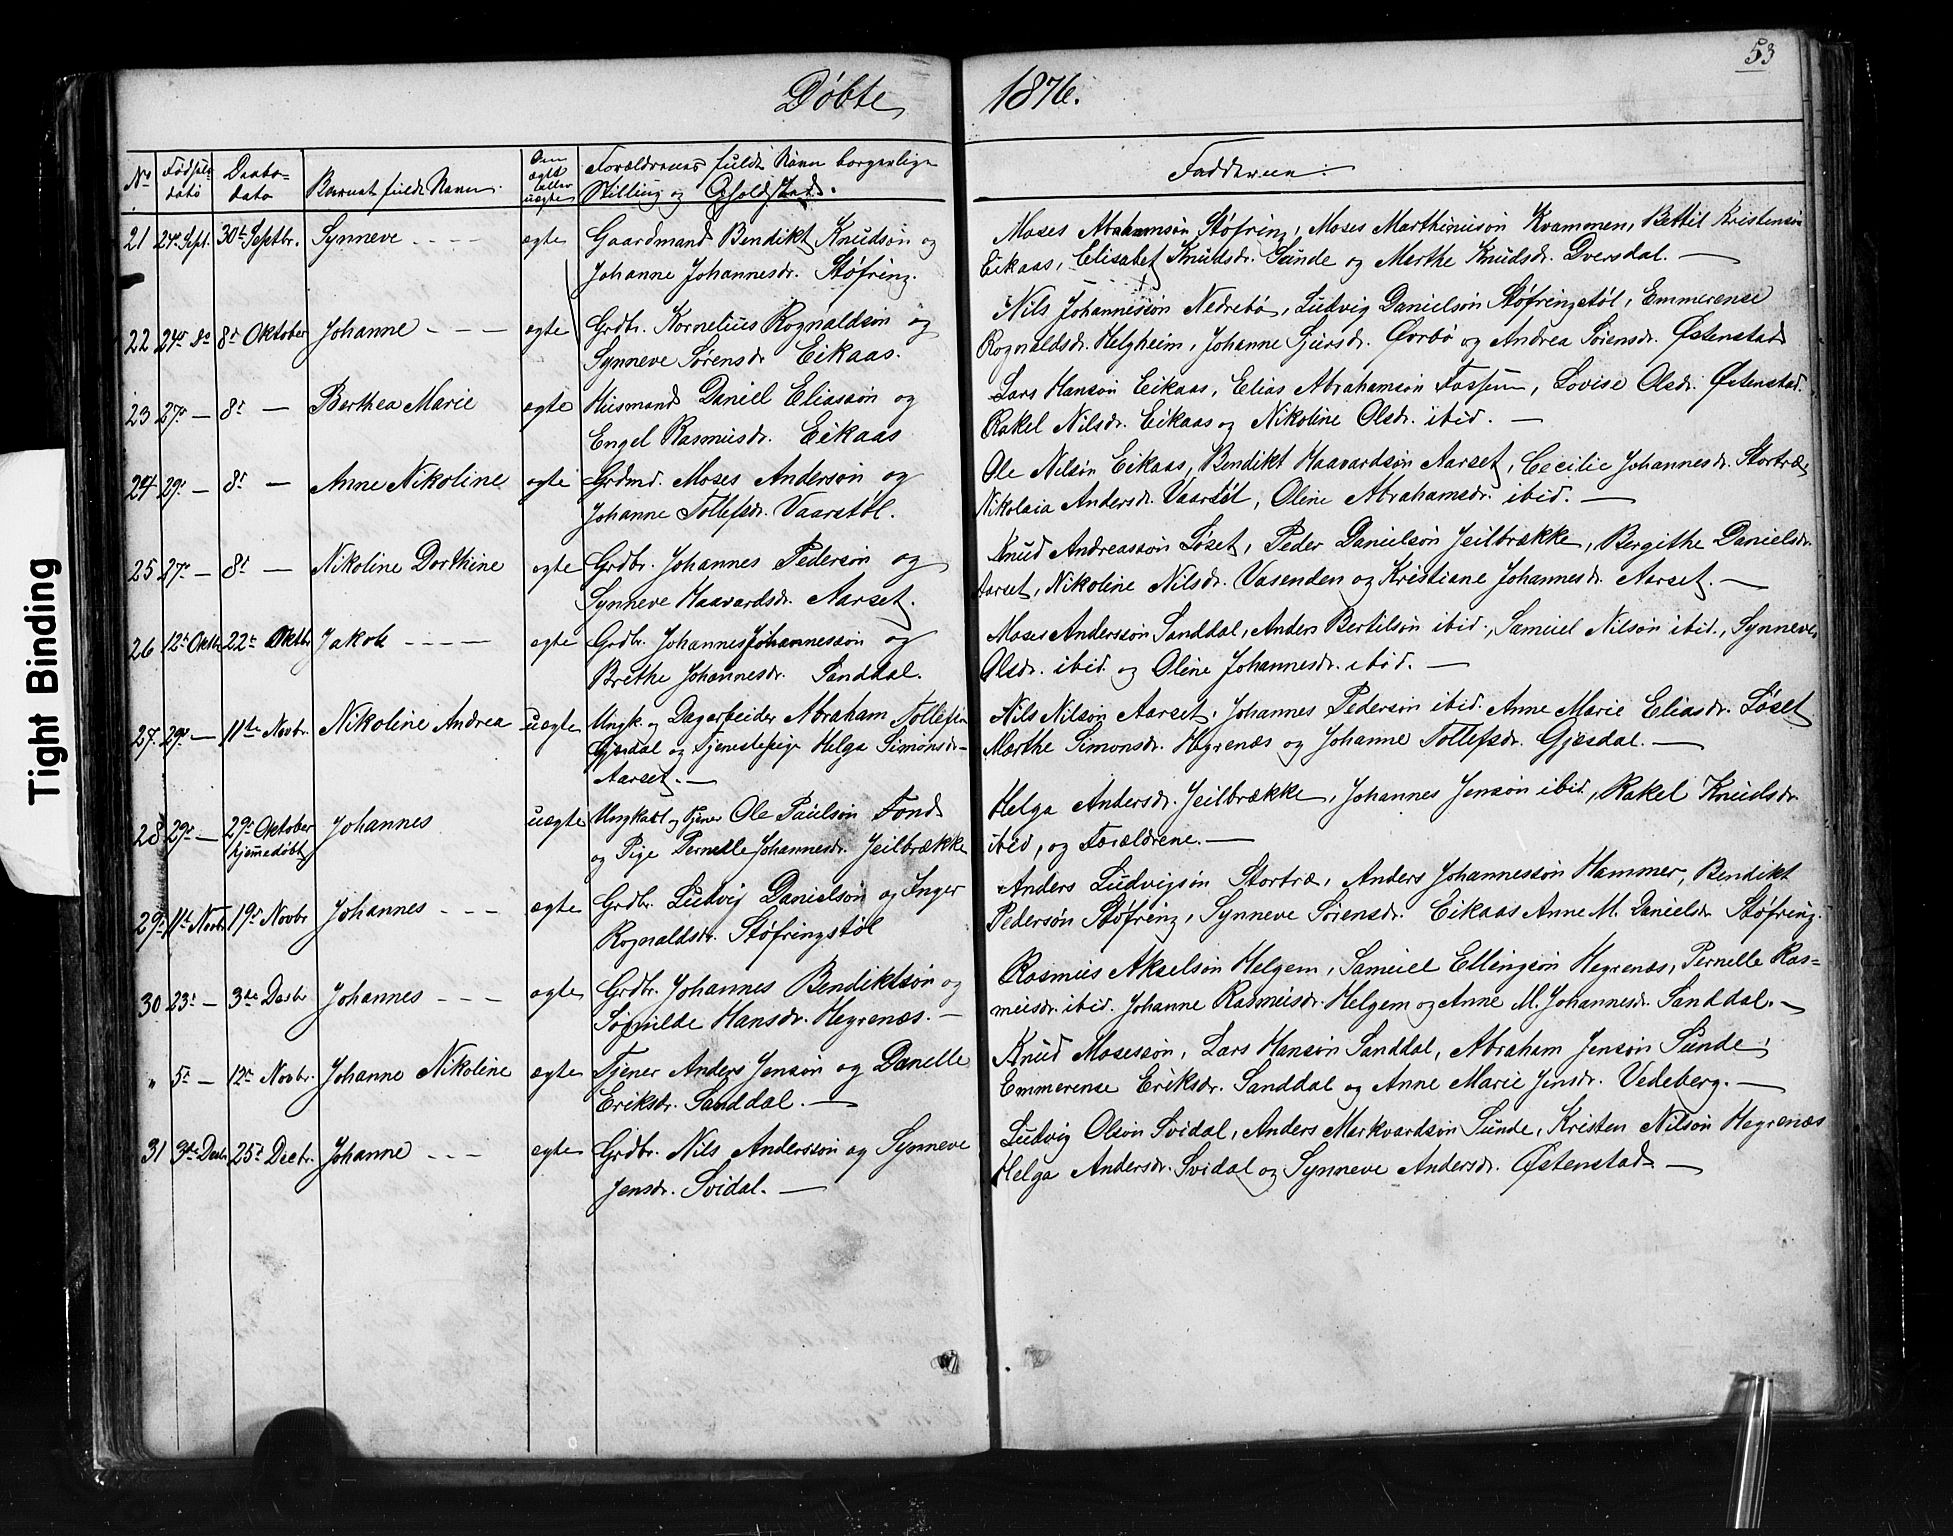 53
Døbte 1876.
No
Fødsels
dato
Daabs-
dato
Barnets fulde Navn.
Om
ægte
eller
uægte
Forældrenes fulde Navn borgerlige
Stilling og Opholdsted.
Faddernes:
21 24de Sept. 30te Septbr. Synneve ægte Gaardmand Bendikt Knudsøn og
Johanne Johannesdr. Støfring.
Moses Abrahamsøn Støfring, Moses Marthinusøn Kvammen, Bertil Kristensøn
Eikaas, Elisabet Knudsdr. Sunde og Marthe Knudsdr. Dversdal. —
22 24de Do 8de Oktober Johanne ægte Grdbr. Kornelius Rognaldsøn og
Synneve Sørensdr Eikaas.
Nils Johannessøn Nedrebø, Ludvig Danielsøn Støfringstøl, Emmerense
Rognaldsdr. Helgheim, Johanne Sjursdr. Øvrbø og Andrea Sørensdr. Østenstad
23 27de — 8de — Berthea Marie ægte Husmand Daniel Eliassøn og
Engel Rasmusdr. Eikaas
Lars Hansøn Eikaas, Elias Abrahamsøn Fossum, Lovise Olsdr. Østenstad.
Rakel Nilsdr. Eikaas og Nikoline Olsdr. ibid. —
24 29de — 8de — Anne Nikoline ægte Grdmd. Moses Andersøn og
Johanne Tollefsdr. Vaarstøl.
Ole Nilsøn Eikaas, Bendikt Haavardsøn Aarset, Cecilie Johannesdr. Stortræ,
Nikolaia Andersdr. Vaarstøl, Oline Abrahamsdr. ibid. —
25 27de — 8de — Nikoline Dorthine ægte Grdbr. Johannes Pedersøn og
Synneve Haavardsdr. Aarset.
Knud Andreassøn Løset, Peder Danielsøn Jeilbrække, Bergithe Danielsdr.
Aarset, Nikoline Nilsdr. Vasenden og Kristiane Johannesdr. Aarset. —
26 12te Oktbr 22de Oktbr Jakob ægte Grdbr. Johannes Johannessøn og
Brethe Johannesdr. Sanddal.
Moses Anderssøn Sanddal, Anders Bertilsøn ibid., Samuel Nilsøn ibid., Synneve
Olsdr. ibid. og Oline Johannesdr. ibid. —
27. 29de — 11te Novbr. Nikoline Andrea uægte Ungk. og Dagarbeider Abraham Tollefsøn
Gjesdal og Tjenestepige Helga Simonsdr.
Aarset. —
Nils Nilsøn Aarset, Johannes Pedersøn ibid. Anne Marie Eliasdr. Løset
Marthe Simonsdr. Hegrenæs og Johanne Tollefsdr. Gjesdal. —
28 29de — 29de Oktober
hjemmedøbt Johannes uægte Ungkarl og Tjener Ole Paulsøn Fond
og Pige Pernelle Johannesdr. Jeilbrække
Helga Andersdr. Jeilbrække, Johannes Jensøn ibid, Rakel Knudsdr
ibid, og Forældrene. —
29. 11te Novbr 19de Novbr Johannes ægte Grdbr. Ludvig Danielson og Inger
Rognaldsdr. Støfringstøl
Anders Ludvigsøn Stortræ, Anders Johannessøn Hammer, Bendikt
Pedersøn Støfring, Synneve Sørensdr. Eikaas Anne M. Danielsdr Støfring.
30 23de — 3die Decbr Johannes ægte Grdbr. Johannes Bendiktsøn og
Hansdr. Hegrenæs. —
Rasmus Akselsøn Helgem, Samuel Ellingsøn Hegrenæs, Pernelle Ras=
musdr. ibid. Johanne Rasmusdr. Helgem og Anne M. Johannesdr. Sanddal. —
" 5te — 12te Novbr. Johanne Nikoline ægte Tjener Anders Jensøn og Danelle
Eriksdr. Sanddal. —
Knud Mosessøn, Lars Hansøn Sanddal, Abraham Jensøn Sunde,
Emmerense Eriksdr. Sanddal og Anne Marie Jensdr. Vedeberg. —
31 3die Decbr 25de Decbr. Johanne ægte Grdbr. Nils Anderssøn og Synneve
Jensdr. Svidal. —
Ludvig Olsøn Svidal, Anders Markvardsøn Sunde, Kristen Nilsøn Hegrenæs
Helga Andersdr. Svidal og Synneve Andersdr. Østenstad —
Tight Binding